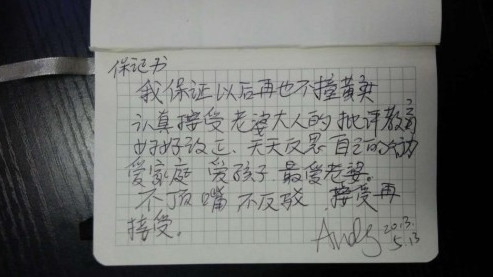 保记书
我保证以后再也不撞黄
认真接受老婆大人的批评教育
好好改正、天天反思自己的
爱家庭 爱孩子 最爱老婆。
不顶嘴 不反驳 接受再
接受。
Andy 2013.
5.13